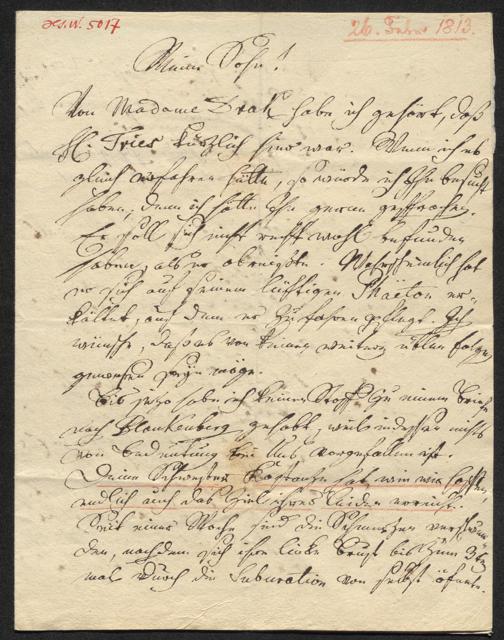 H.S.N. 5017
26. Febr. 1813.
Mein Sohn!
Von Madame Drak habe ich gehört, daß
H. Fries kürzlich hier war. Wenn ich es
gleich erfahren hätte, so würde ich ihn besucht
haben, denn ich hätte ihn gerne gesprochen.
Er soll sich nicht recht wohl befunden
haben, als er abreiste. Wahrscheinlich hat
er sich auf seinem luftigen Phaëton er-
kältet, auf dem er zu fahren pflegt. Ich
wünsche, daß es von keinen weitern üblen Folgen
gewesen seyn möge.
Bis jezo habe ich keinen Stoff zu einem Briefe
nach Blankenberg gehabt, weil indessen nichts
von Bedeutung bei uns vorgefallen ist.
Deine Schwester hat, wie wir hoffen,
endlich auch das Ziel ihres Leiden erreicht.
Seit einer Woche sind die Schmerzen verschwun-
den, nachdem sich ihre linke Brust bis zum 3ten
mal durch die Suburation von selbst öfnete.